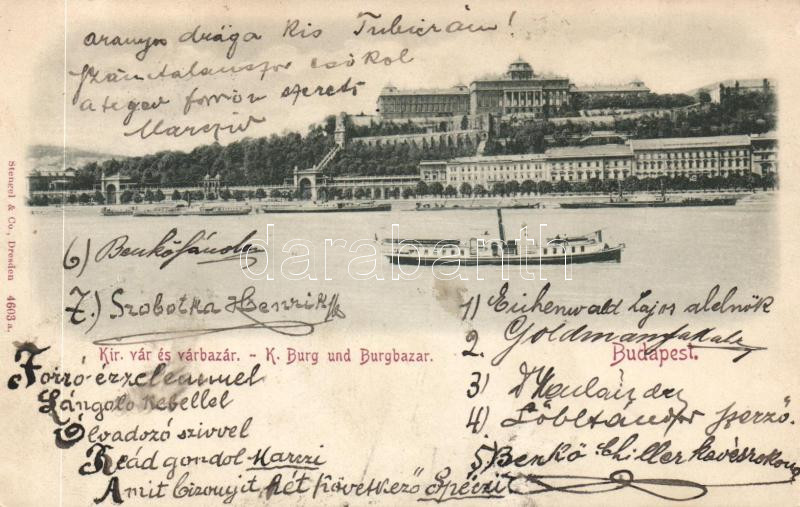 aranyos drága kis Tubicám!
Számtalanszor csókol
a téged forrón szerető
Marczid
6) Benkő Sándor
7.) Szobotka Henrik
1) Eichenwald Lajos alelnök
2. Goldmann
3)
4) Löbl Sándor szerző
5) Benkő
Kir. vár és várbazár. - K. Burg und Burgbazar.
Budapest.
Forró érzelemmel
Lángoló kebellel
Olvadozó szivvel
Reád gondol Marczi
Amit bizonyit hét következő
Stengel & Co., Dresden 4603 a.
darabanth